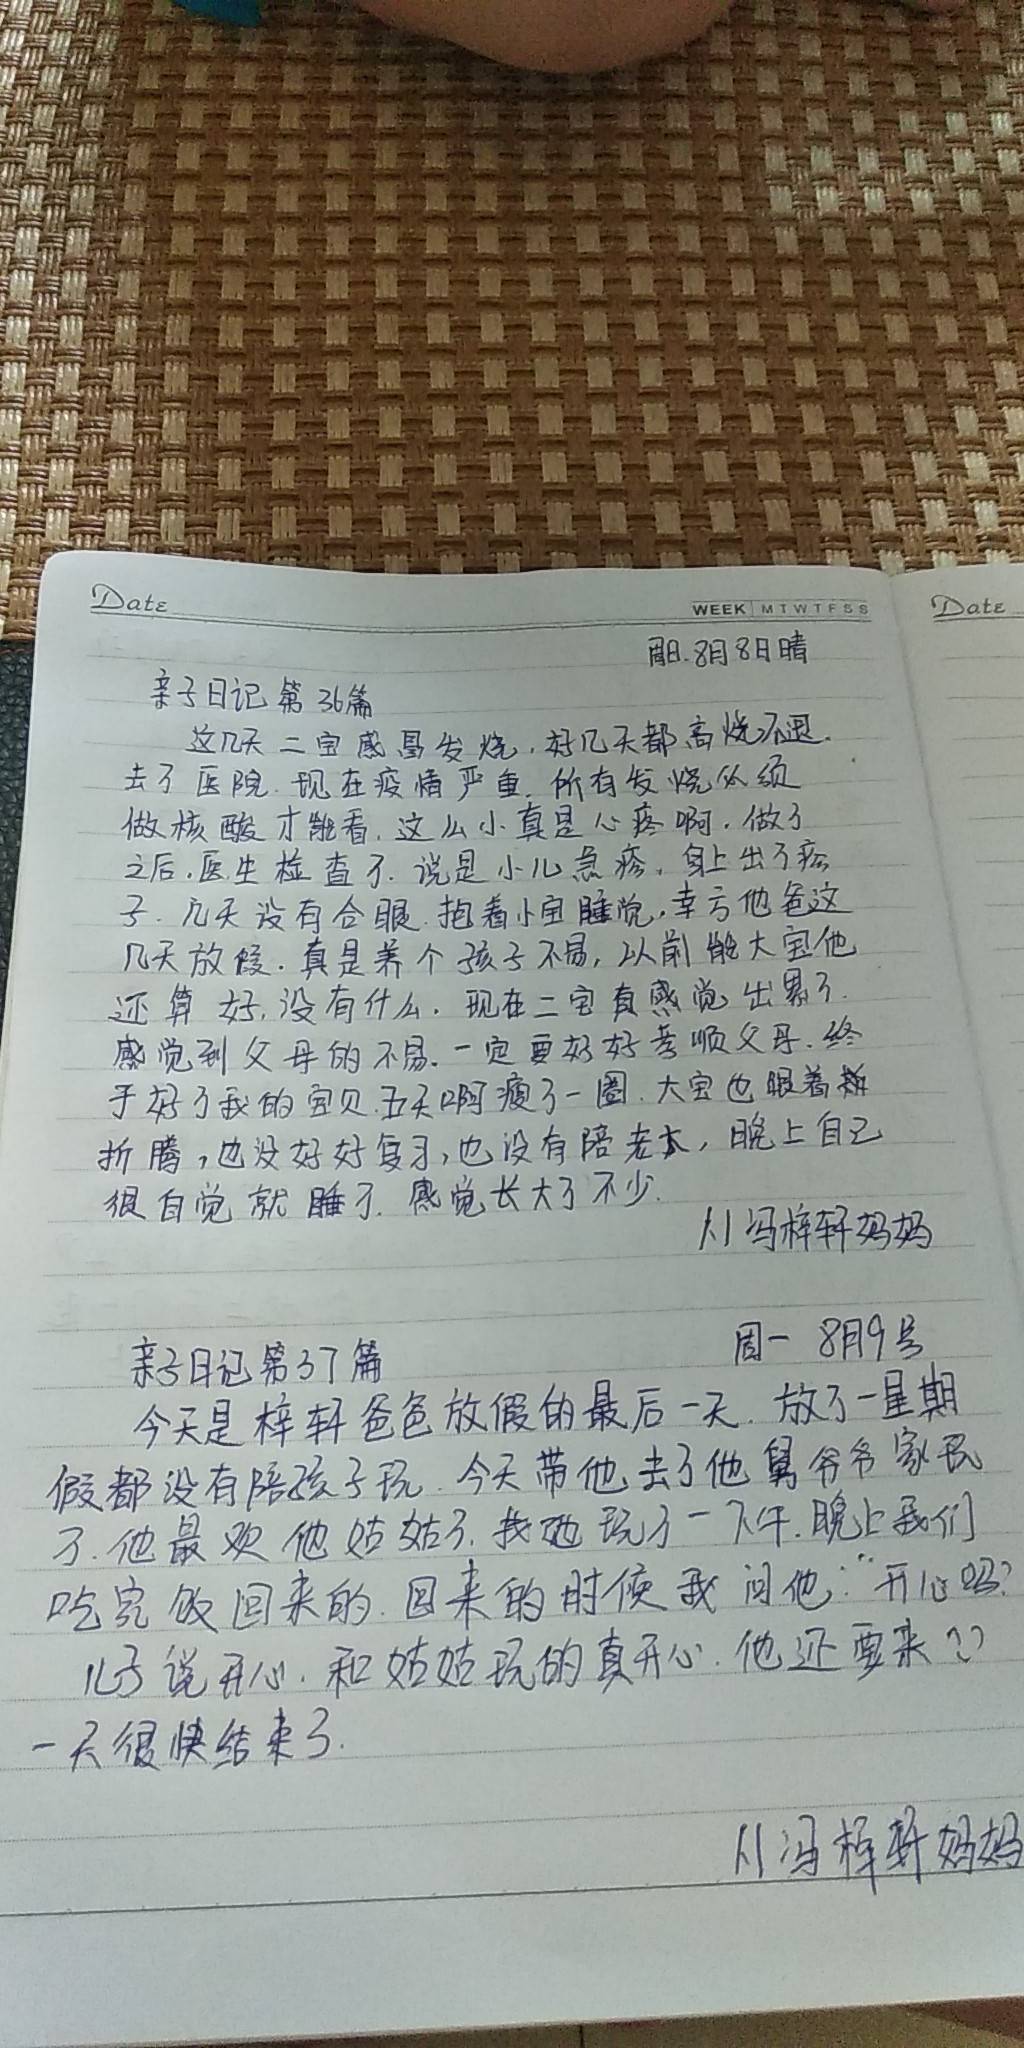 Date
WEEK M T W T F S S
Date
周日.8月8日晴
亲子日记第36篇
这几天二宝感冒发烧,好几天都高烧不退.
去了医院.现在疫情严重.所有发烧必须
做核酸才能看.这么小真是心疼啊.做了
之后.医生检查了.说是小儿急疹,身上出了疹
子.几天没有合眼.抱着小宝睡觉,幸亏他爸这
几天放假.真是养个孩子不易,以前能大宝他
还算好,没有什么.现在二宝真感觉出累了.
感觉到父母的不易.一定要好好孝顺父母.终
于好了我的宝贝.五天啊瘦了一圈.大宝也跟着
折腾,也没好好复习,也没有陪老太,晚上自己
很自觉就睡了.感觉长大了不少.
八1冯梓轩妈妈
亲子日记第37篇
周一 8月9号
今天是梓轩爸爸放假的最后一天.放了一星期
假都没有陪孩子玩.今天带他去了他舅爷爷家玩
了.他最欢他姑姑了.找她玩了一下午.晚上我们
吃完饭回来的.回来的时候我问他:“开心吗?
儿子说开心.和姑姑玩的真开心.他还要来??
一天很快结束了.
八1冯梓轩妈妈